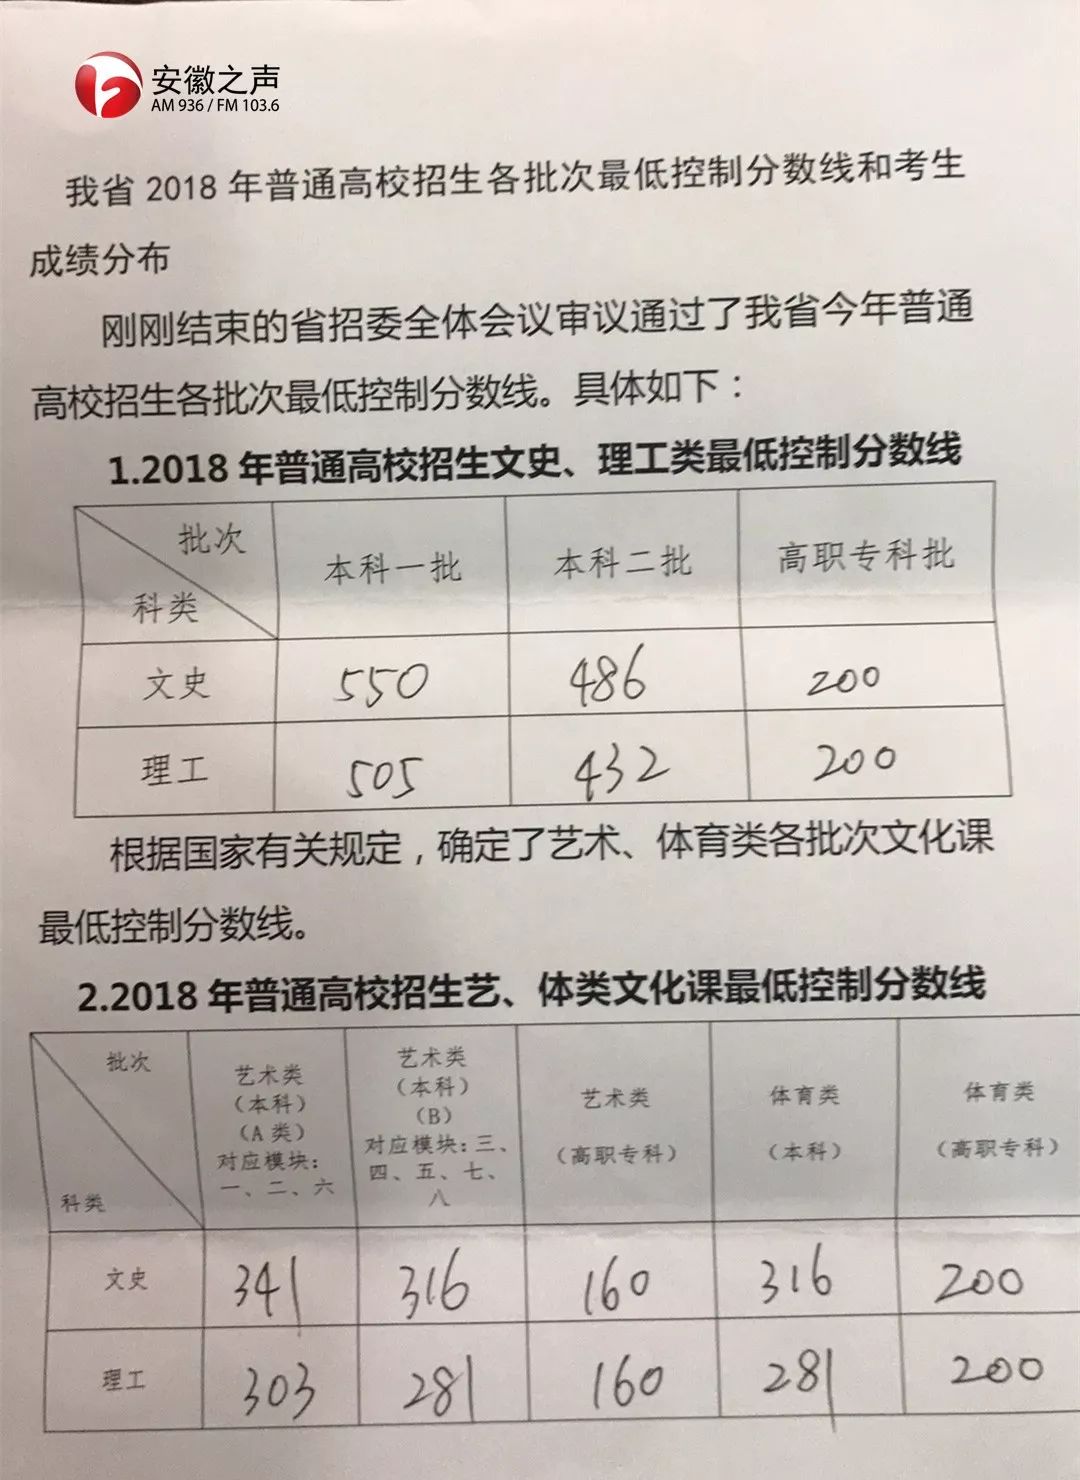 安徽之声
AM 936 / FM 103.6
我省 2018 年普通高校招生各批次最低控制分数线和考生
成绩分布
刚刚结束的省招委全体会议审议通过了我省今年普通
高校招生各批次最低控制分数线。具体如下：
1.2018 年普通高校招生文史、理工类最低控制分数线
批次 科类 本科一批 本科二批 高职专科批
文史 550 486 200
理工 505 432 200
根据国家有关规定，确定了艺术、体育类各批次文化课
最低控制分数线。
2.2018 年普通高校招生艺、体类文化课最低控制分数线
批次
科类
艺术类
（本科）
（A 类）
对应模块：
一、二、六
艺术类
（本科）
（B）
对应模块：三、
四、五、七、
八
艺术类
（高职专科）
体育类
（本科）
体育类
（高职专科）
文史 341 316 160 316 200
理工 303 281 160 281 200